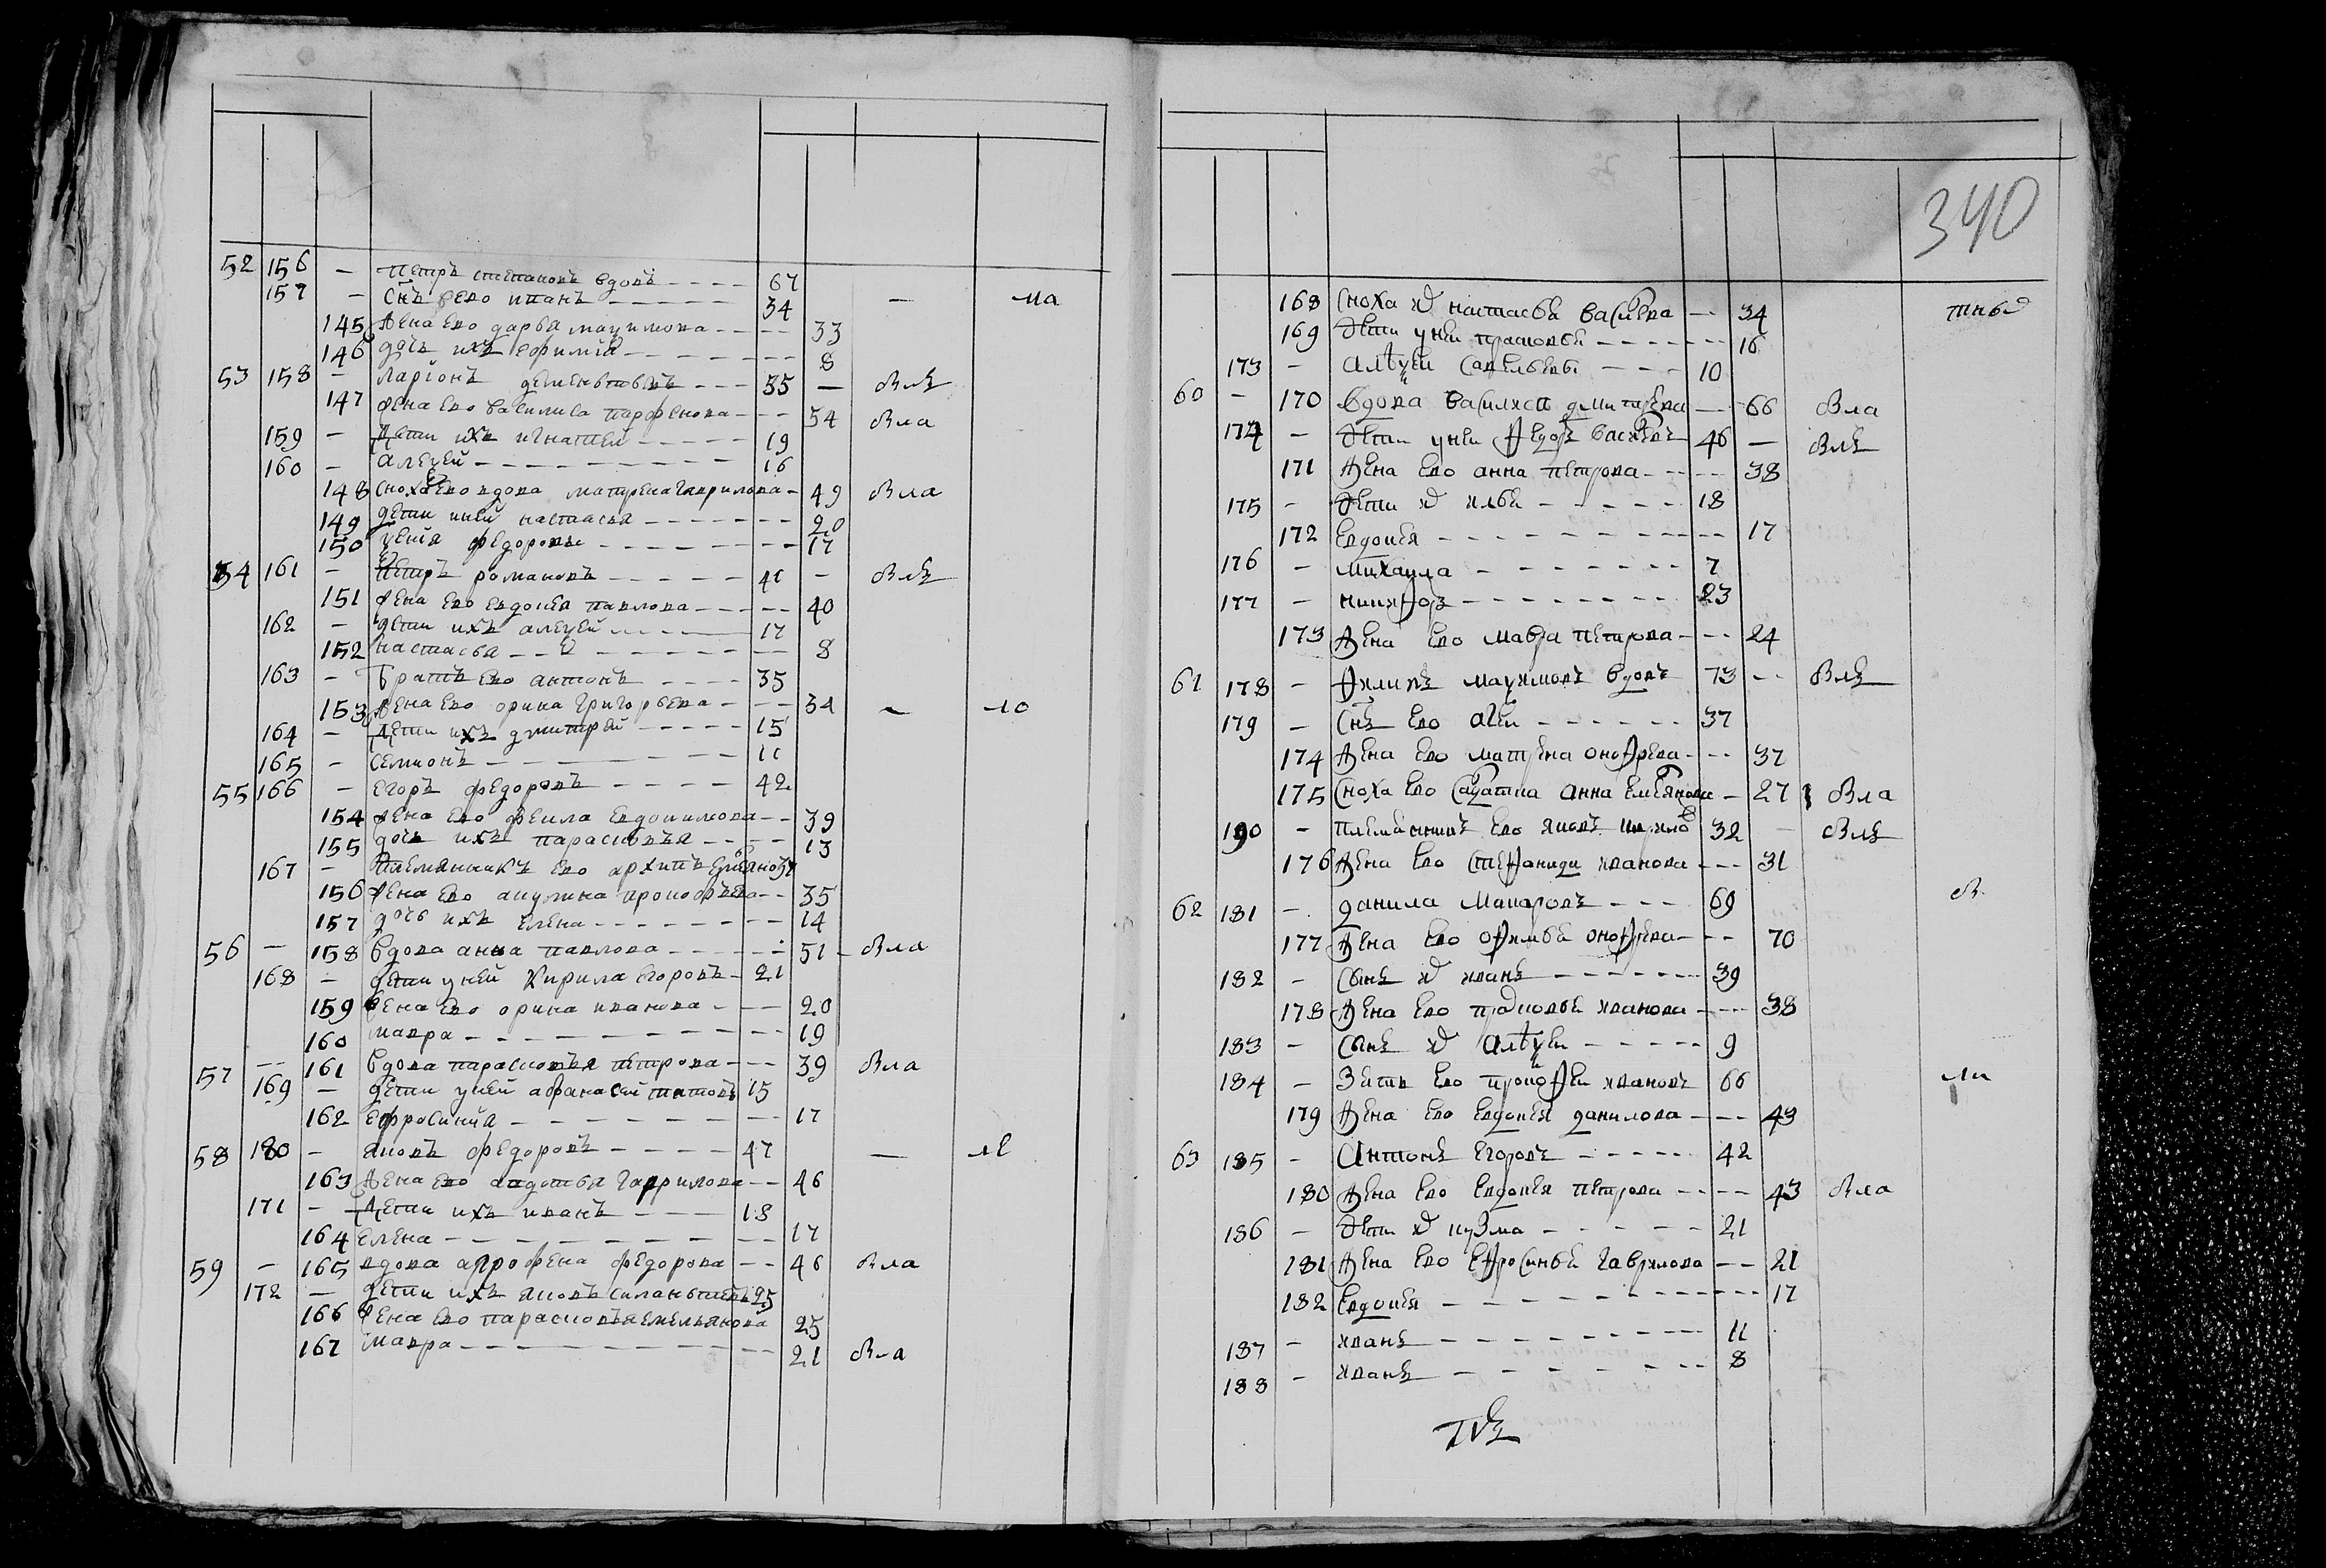 52 156 — петръ степановъ вдовъ 67
157 — Снъ ево иванъ 34 — ма
145 жена ево дарья мазимова 33
146 дочь ихъ ефимія 8
53 158 — ларіонъ дементьевъ 35 — Влъ
147 жена ево василиса парфенова 54 Вла
159 — Дети ихъ игнатей 19
160 — алеѯей 16
148 сноха ево вдова матрена гаврилова 49 Вла
149 дети у ней настасья 20
150 феодоровы 17
54 161 — петръ романовъ 41 — Влъ
151 жена ево евдокея павлова 40
162 — дети ихъ алеѯей 17
152 настасья 8
163 — братъ ево антонъ 35
153 жена ево орина григорьева 34 — ло
164 — Дети ихъ дмитрей 15
165 — семионъ 11
55 166 — егоръ федоровъ 42
154 жена ево фекла евдокимова 39
155 дочь ихъ парасковья 13
167 — племянникъ ево архипъ емельяновъ 37
156 жена ево акулина прокофьева 35
157 дочь ихъ елена 14
56 — 158 вдова анна павлова 51 Вла
168 — дети у ней кирила егоровъ 21
159 жена ево орина иванова 20
160 мавра 19
57 — 161 вдова парасковья петрова 39 Вла
169 — дети у ней афанасий титовъ 15
162 ефросиния 17
58 180 — яковъ федоровъ 47 — ле
163 жена ево авдотья гаврилова 46
171 — Дети ихъ иванъ 18
164 елена 17
59 — 165 вдова агрофена федорова 46 Вла
172 — дети ихъ яковъ силантьевъ 25
166 жена ево парасковья емельянова 25
167 мавра 21 Вла
340
168 Сноха ихъ настасья васильева 34 тные
169 дети у ней прасковья 16
173 — алеѯей савельевы 10
60 — 170 Вдова василиса дмитрева 66 Вла
174 — дети у ней федоръ васильевъ 46 — Влъ
171 жена ево анна петрова 38
175 — дети их илья 18
172 Евдокея 17
176 — михаила 7
177 — никифоръ 23
173 жена ево мавра петрова 24
61 178 — филипъ маѯимовъ вдовъ 73 — Влъ
179 — Снъ ево агей 37
174 жена ево матрена онофрева 37
175 Сноха ево Салдатка анна емельянова 27 Вла
190 — племянникъ ево яковъ 32 — Влъ
176 жена ево стефанида иванова 31
62 181 — данила макаровъ 69 В
177 жена ево офимья онофрева 70
182 — Сынъ их иванъ 39
178 жена ево прасковья иванова 38
183 — Сынъ их алеѯей 9
184 — Зять ево прокофей ивановъ 66 ли
179 жена ево евдокея данилова 43
63 185 — Антонъ егоровъ 42
180 жена ево евдокея петрова 43 Вла
186 — дети их кузма 21
181 жена ево ефросинья гаврилова 21
182 Евдокея 17
187 — иванъ 11
188 — иванъ 8